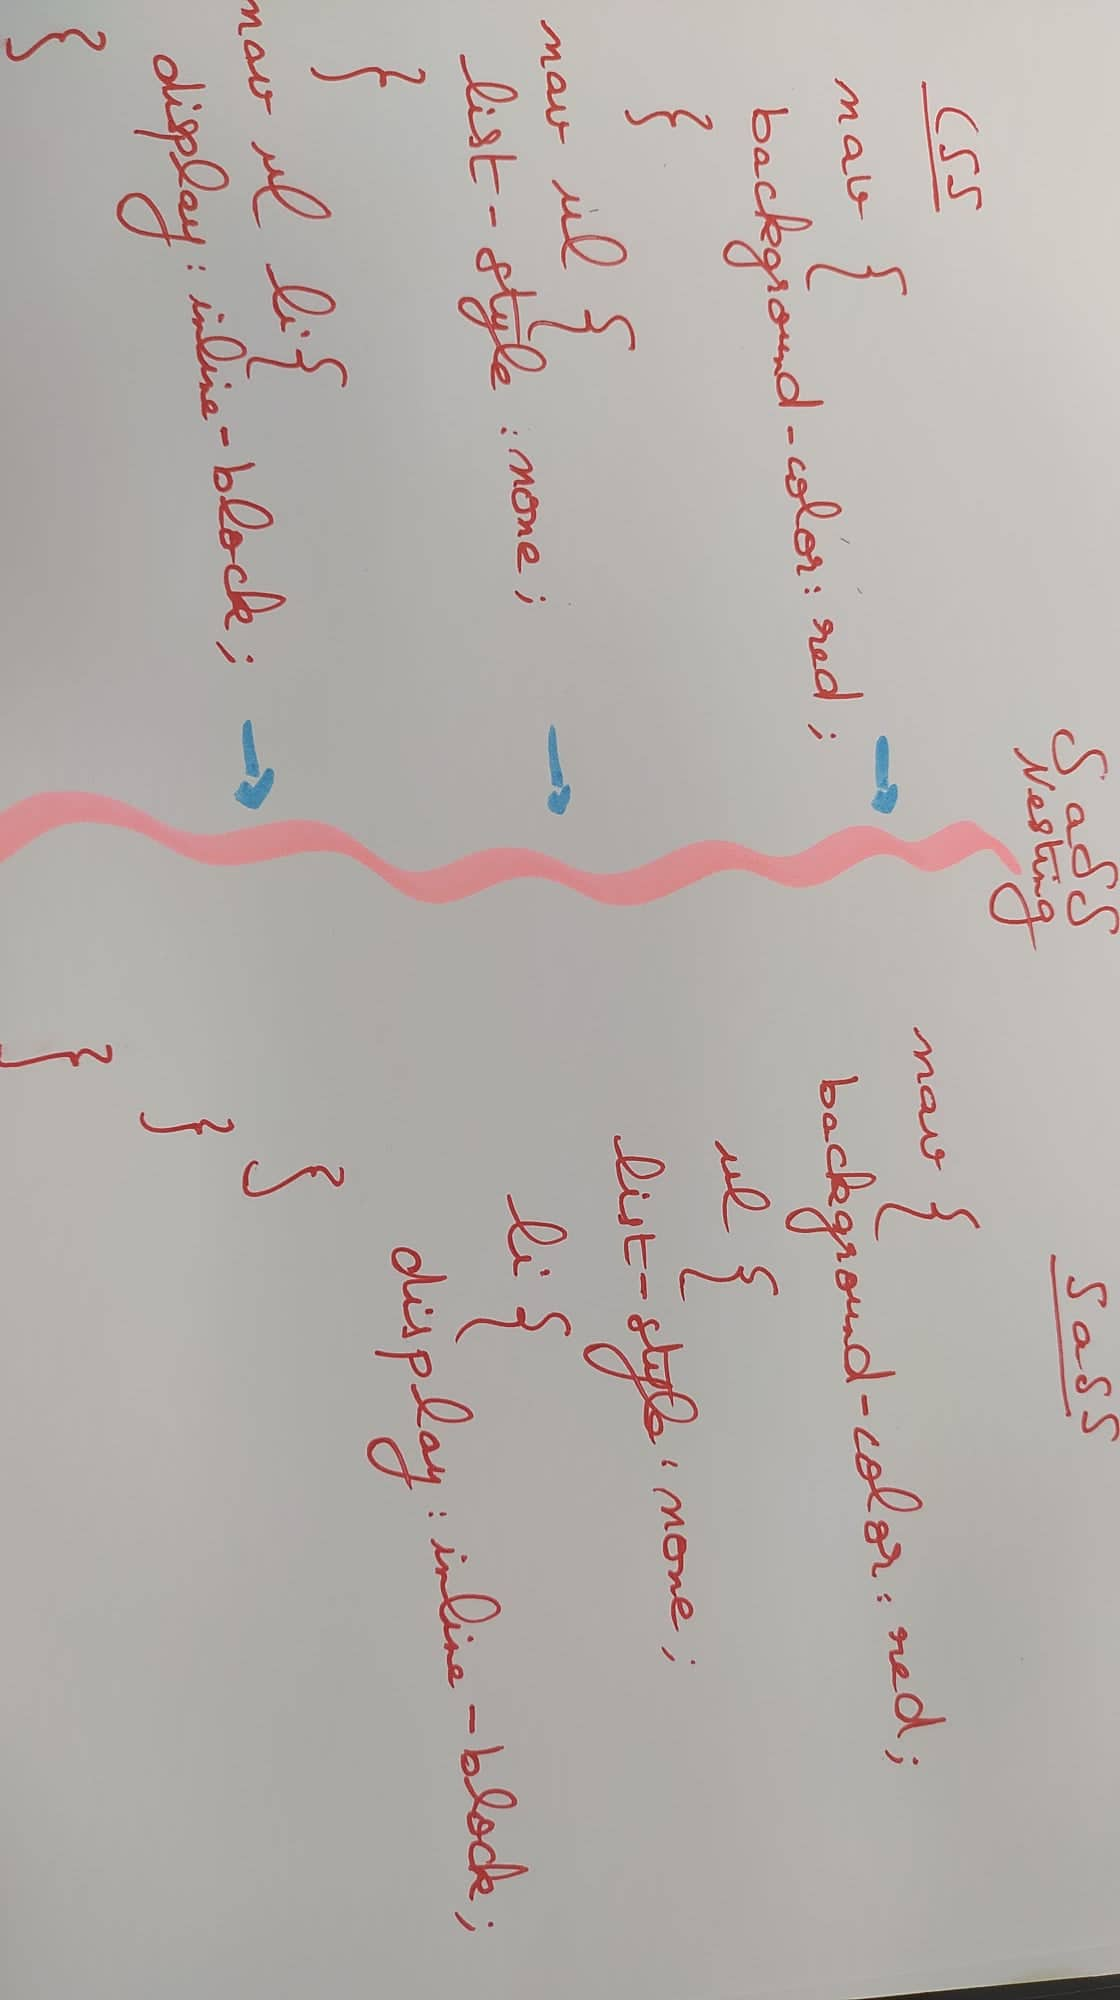 Sass
Nesting
CSS
nav {
background-color: red;
}
nav ul {
list-style: none;
}
nav ul li {
display: inline-block;
}
Sass
nav {
background-color: red;
ul {
list-style: none;
li {
display: inline-block;
}
}
}